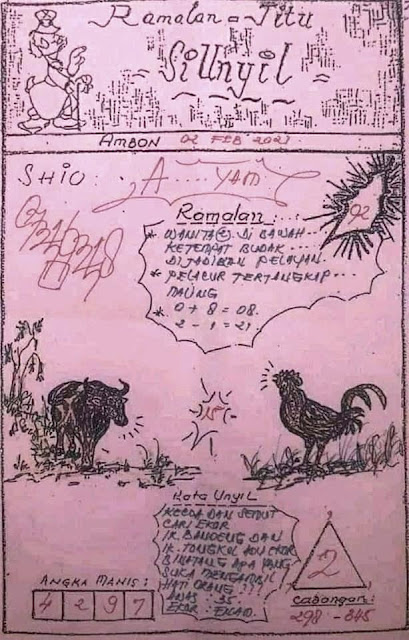 Ramalan = Jitu
SiUnyil
AMBON 02 FEB 2021
SHIO: A....YAM
92
Ramalan
* WANITA DI BAWAH
KETEMPAT BUDAK
DIJADIKAN PELAYAN.
* PELACUR TERTANGKAP
* 0 + 8 = 08.
2 - 1 = 21.
15
Kata Unyil
KECOA DAN SEMUT
CARI EKOR
IK. BANDENG DAN
BINATANG APA YANG
SUKA MENGAMBIL
HATI ORANG ???
AWAS : 35
2
ANGKA MANIS:
4 2 9 7
Cabangan:
298 - 845